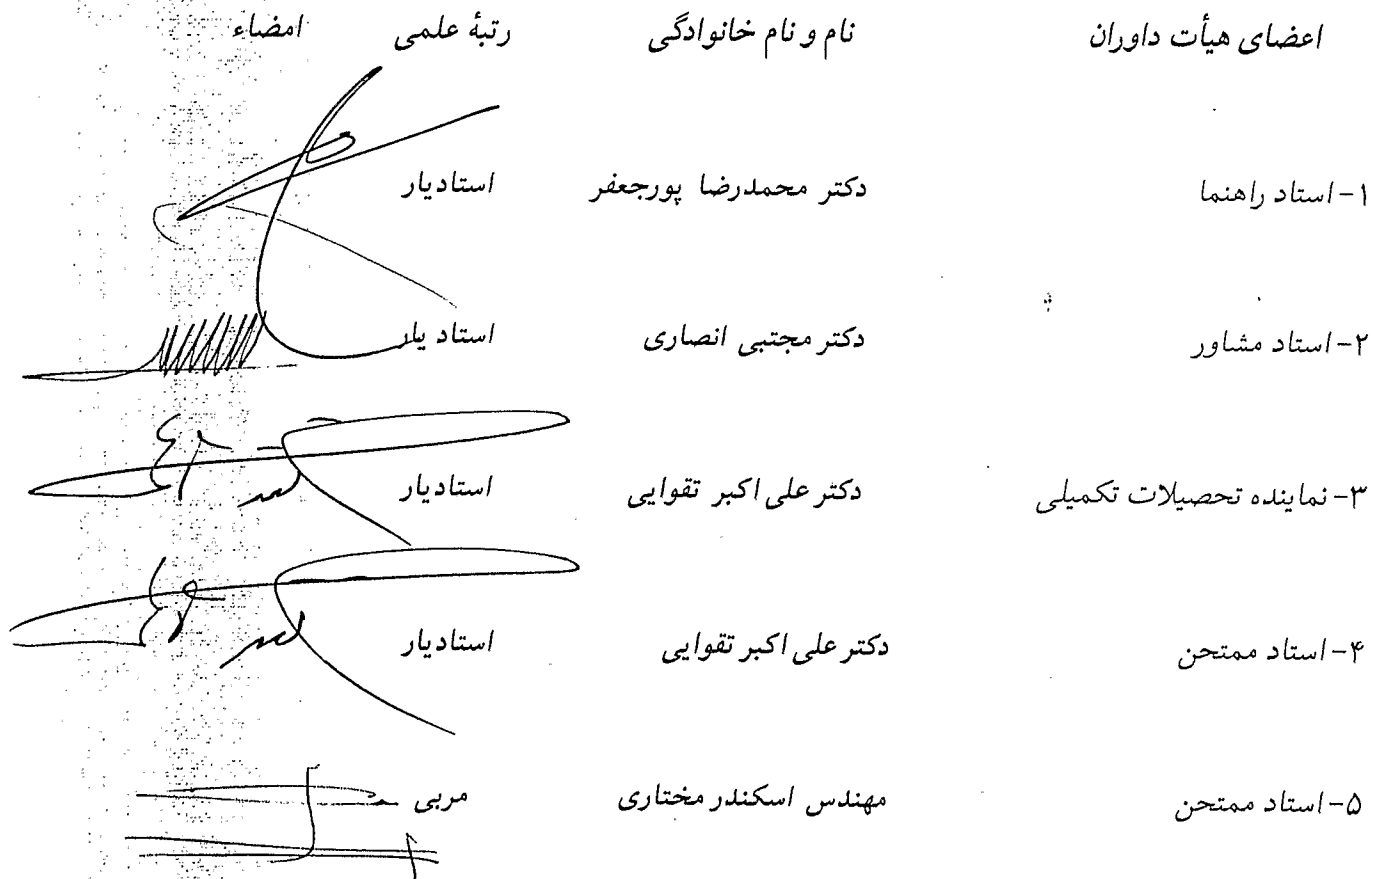 اعضای هیأت داوران نام و نام خانوادگی رتبۀ علمی امضاء
۱- استاد راهنما دکتر محمدرضا پورجعفر استادیار
۲- استاد مشاور دکتر مجتبی انصاری استادیار
۳- نماینده تحصیلات تکمیلی دکتر علی اکبر تقوایی استادیار
۴- استاد ممتحن دکتر علی اکبر تقوایی استادیار
۵- استاد ممتحن مهندس اسکندر مختاری مربی